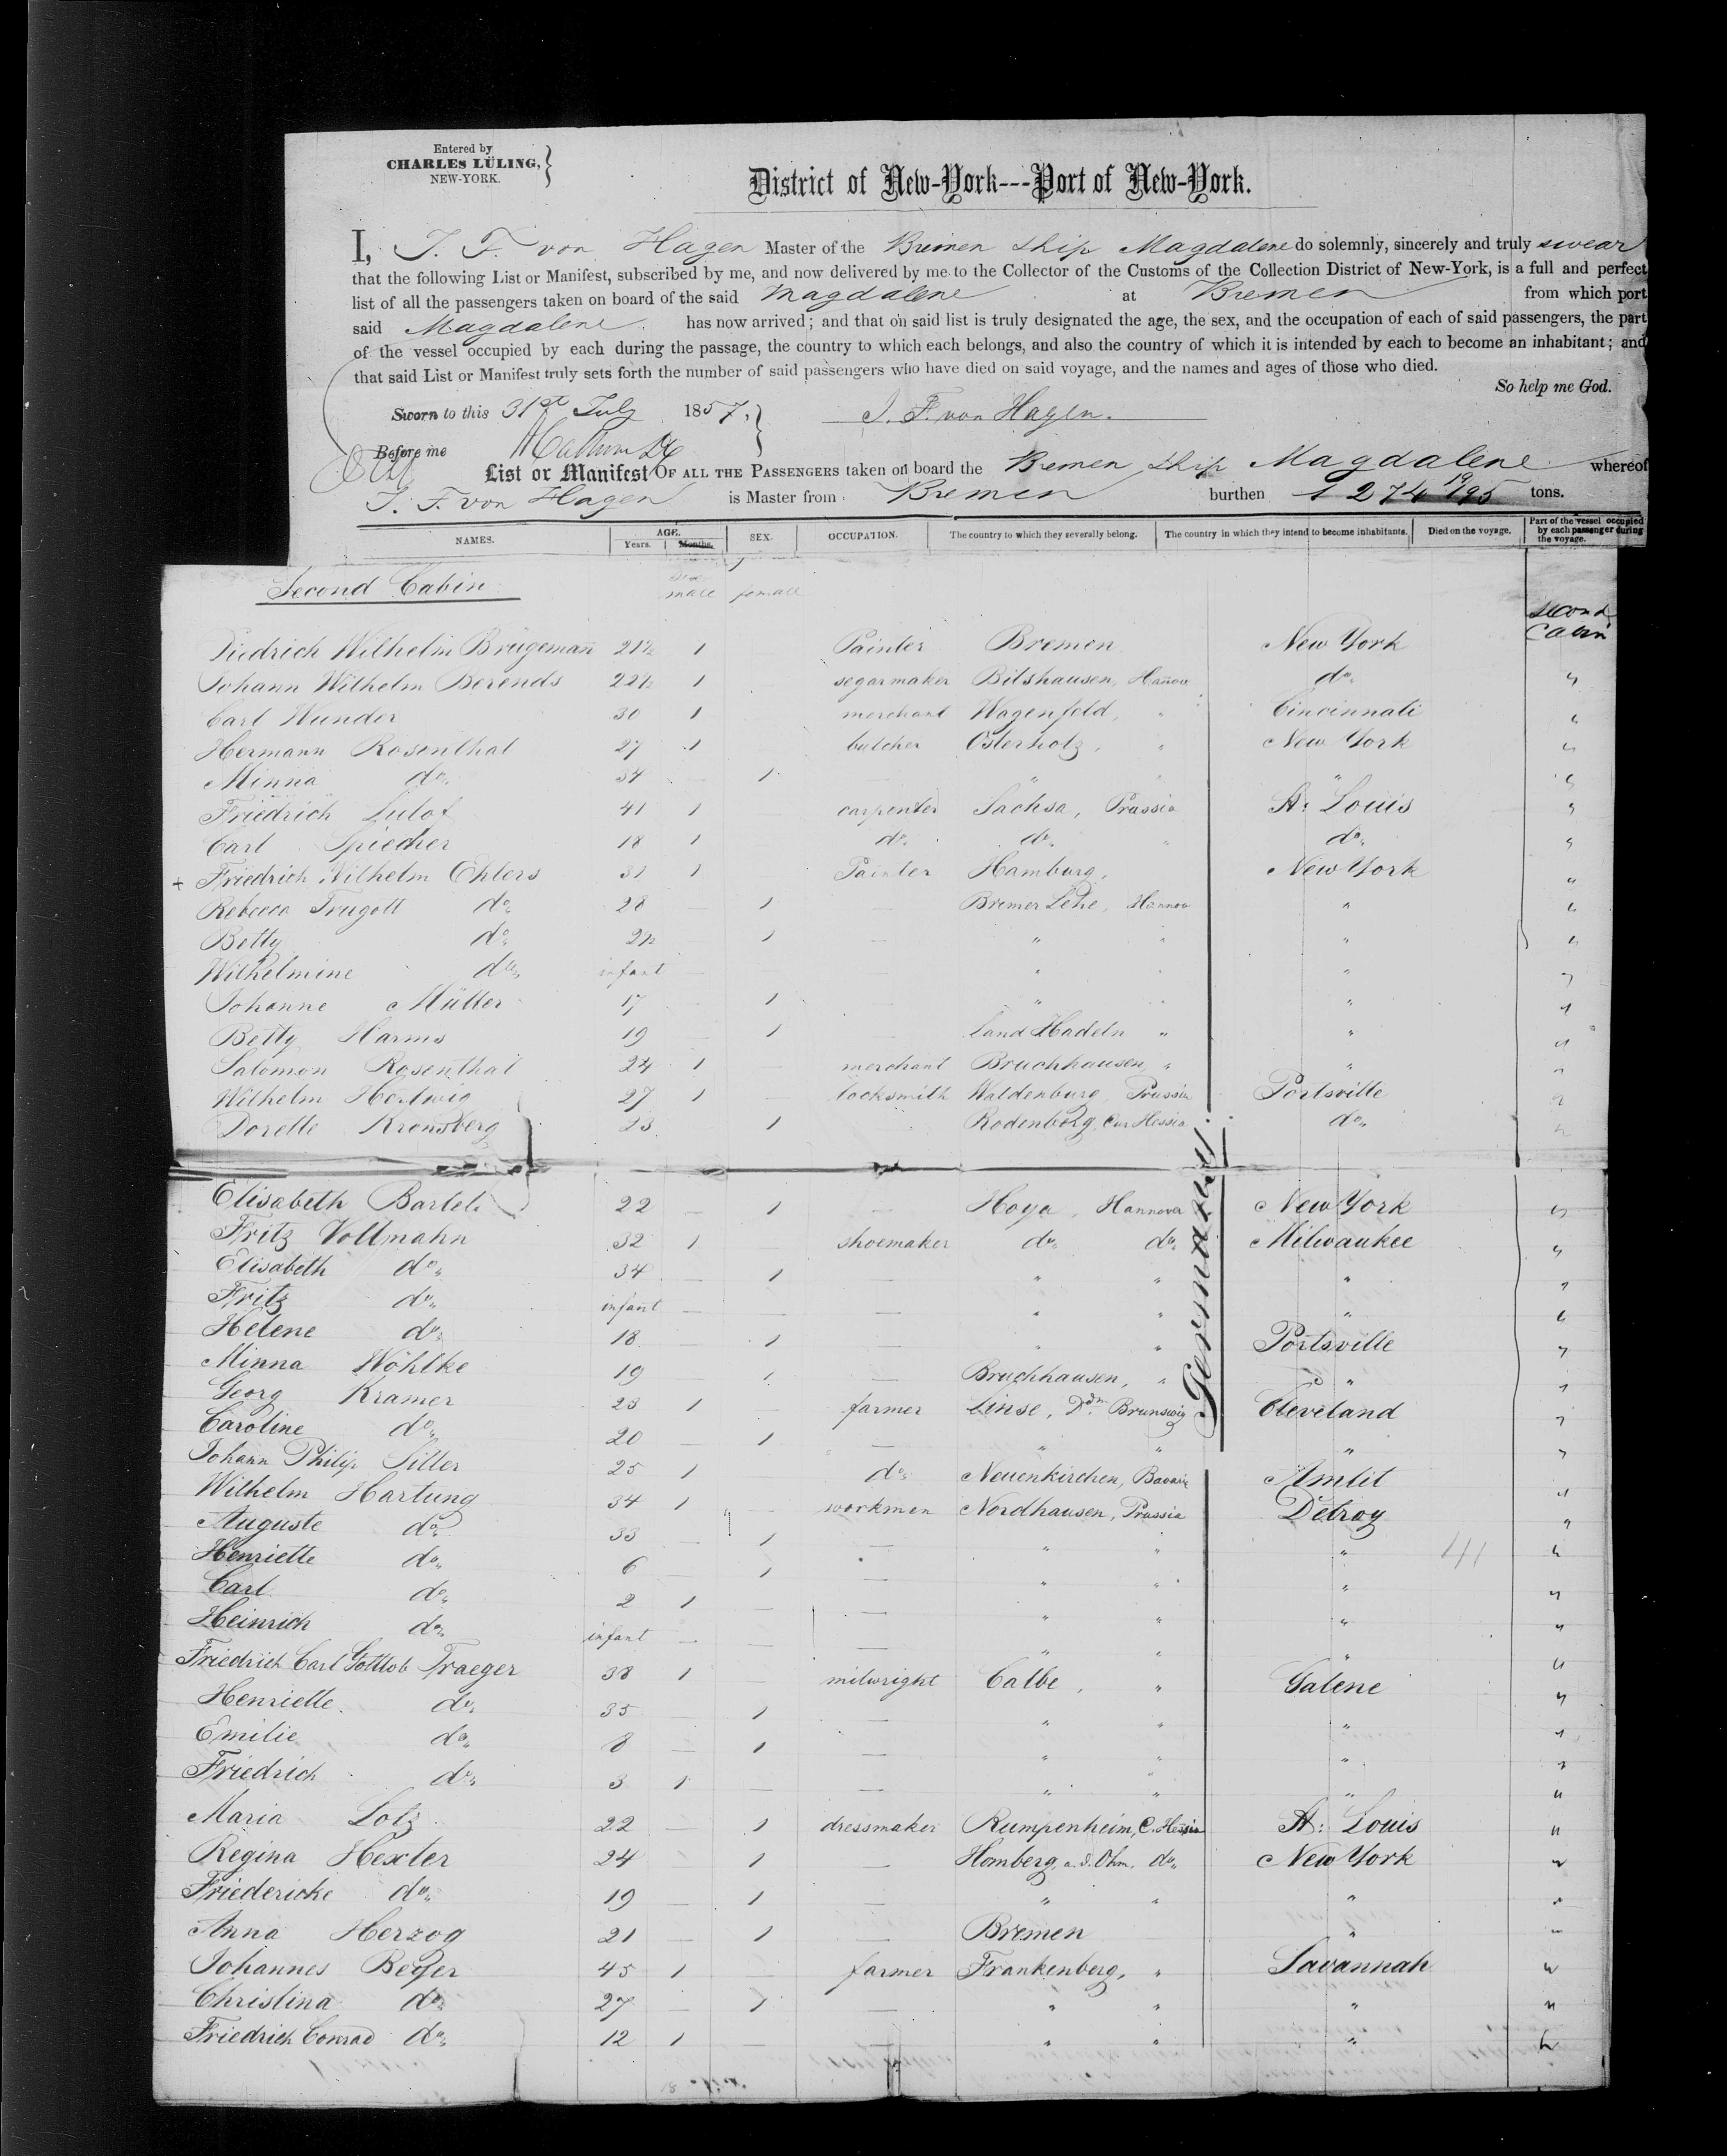 Entered by
CHARLES LÜLING,
NEW-YORK.
District of New-York---Port of New-York.
I, J. F. von Hagen Master of the Bremen ship Magdalene do solemnly, sincerely and truly swear
that the following List or Manifest, subscribed by me, and now delivered by me to the Collector of the Customs of the Collection District of New-York, is a full and perfect
list of all the passengers taken on board of the said Magdalene at Bremen from which port
said Magdalene has now arrived; and that on said list is truly designated the age, the sex, and the occupation of each of said passengers, the part
of the vessel occupied by each during the passage, the country to which each belongs, and also the country of which it is intended by each to become an inhabitant; and
that said List or Manifest truly sets forth the number of said passengers who have died on said voyage, and the names and ages of those who died.
So help me God.
Sworn to this 31st July 1857, J. F. von Hagen.
Before me
List or Manifest OF ALL THE PASSENGERS taken on board the Bremen ship Magdalene whereof
J. F. von Hagen is Master from Bremen burthen 1274 19/95 tons.
NAMES. AGE. Years. Months. SEX. OCCUPATION. The country to which they severally belong. The country in which they intend to become inhabitants. Died on the voyage. Part of the vessel occupied by each passenger during the voyage.
Second Cabin male female
second Cabin
Diedrich Wilhelm Brügeman 21½ 1 — Painter Bremen New York
Johann Wilhelm Berends 22½ 1 segarmaker Bilshausen, Hannov do. "
Carl Wunder 30 1 merchant Wagenfeld, " Cincinnati "
Hermann Rosenthal 27 1 butcher Osterholz, " New York "
Minna do. 34 — 1 — " " " "
Friedrich Lulof 41 1 — carpenter Sachsa, Prussia St. Louis "
Carl Spiecher 18 1 — do. do. " do. "
+ Friedrich Wilhelm Ehlers 31 1 — Painter Hamburg, New York "
Rebecca Trugott do. 28 — 1 — Bremer Lehe, Hannov " "
Betty do. 2½ 1 — " " " "
Wilhelmine do. infant " " " "
Johanne Müller 17 — 1 — " " " "
Betty Harms 19 — 1 — Land Hadeln " " "
Salomon Rosenthal 24 1 — merchant Bruchhausen " " "
Wilhelm Hertwig 27 1 — locksmith Waldenburg, Prussia Portsville "
Dorette Kronsberg 23 1 Rodenberg, Cur Hessia do. "
Elisabeth Bartels 22 — 1 — Hoya, Hannover New York "
Fritz Vollmahn 32 1 — shoemaker do. do. Milwaukee "
Elisabeth do. 34 — 1 — " " " "
Fritz do. infant — — — " " " "
Helene do. 18 1 — " " Portsville "
Minna Wöhlke 19 — 1 — Bruchhausen, " " "
Georg Kramer 23 1 — farmer Linse, Brunswig Cleveland "
Caroline do. 20 — 1 — " " " "
Johann Philip Sitter 25 1 — do. Neuenkirchen, Bavaria Amlit "
Wilhelm Hartung 34 1 — workmen Nordhausen, Prussia Detroy "
Auguste do. 33 — 1 — " " " "
Henriette do. 6 — 1 — " " " "
Carl do. 2 1 — — " " " "
Heinrich do. infant — — — " " " "
Friedrich Carl Gottlob Traeger 38 1 — milwright Calbe, " Galene "
Henriette do. 35 — 1 — " " " "
Emilie do. 8 — 1 — " " " "
Friedrich do. 3 1 — — " " " "
Maria Lotz 22 — 1 dressmaker Rumpenheim, C. Hessia St. Louis "
Regina Hexter 24 1 — Homberg, a. d. Ohm, do. New York "
Friedericke do. 19 — 1 — " " " "
Anna Herzog 21 — 1 — Bremen " "
Johannes Beyer 45 1 — farmer Frankenberg, " Savannah "
Christina do. 27 — 1 — " " " "
Friedrich Conrad do. 12 1 — — " " " "
Germany.
141